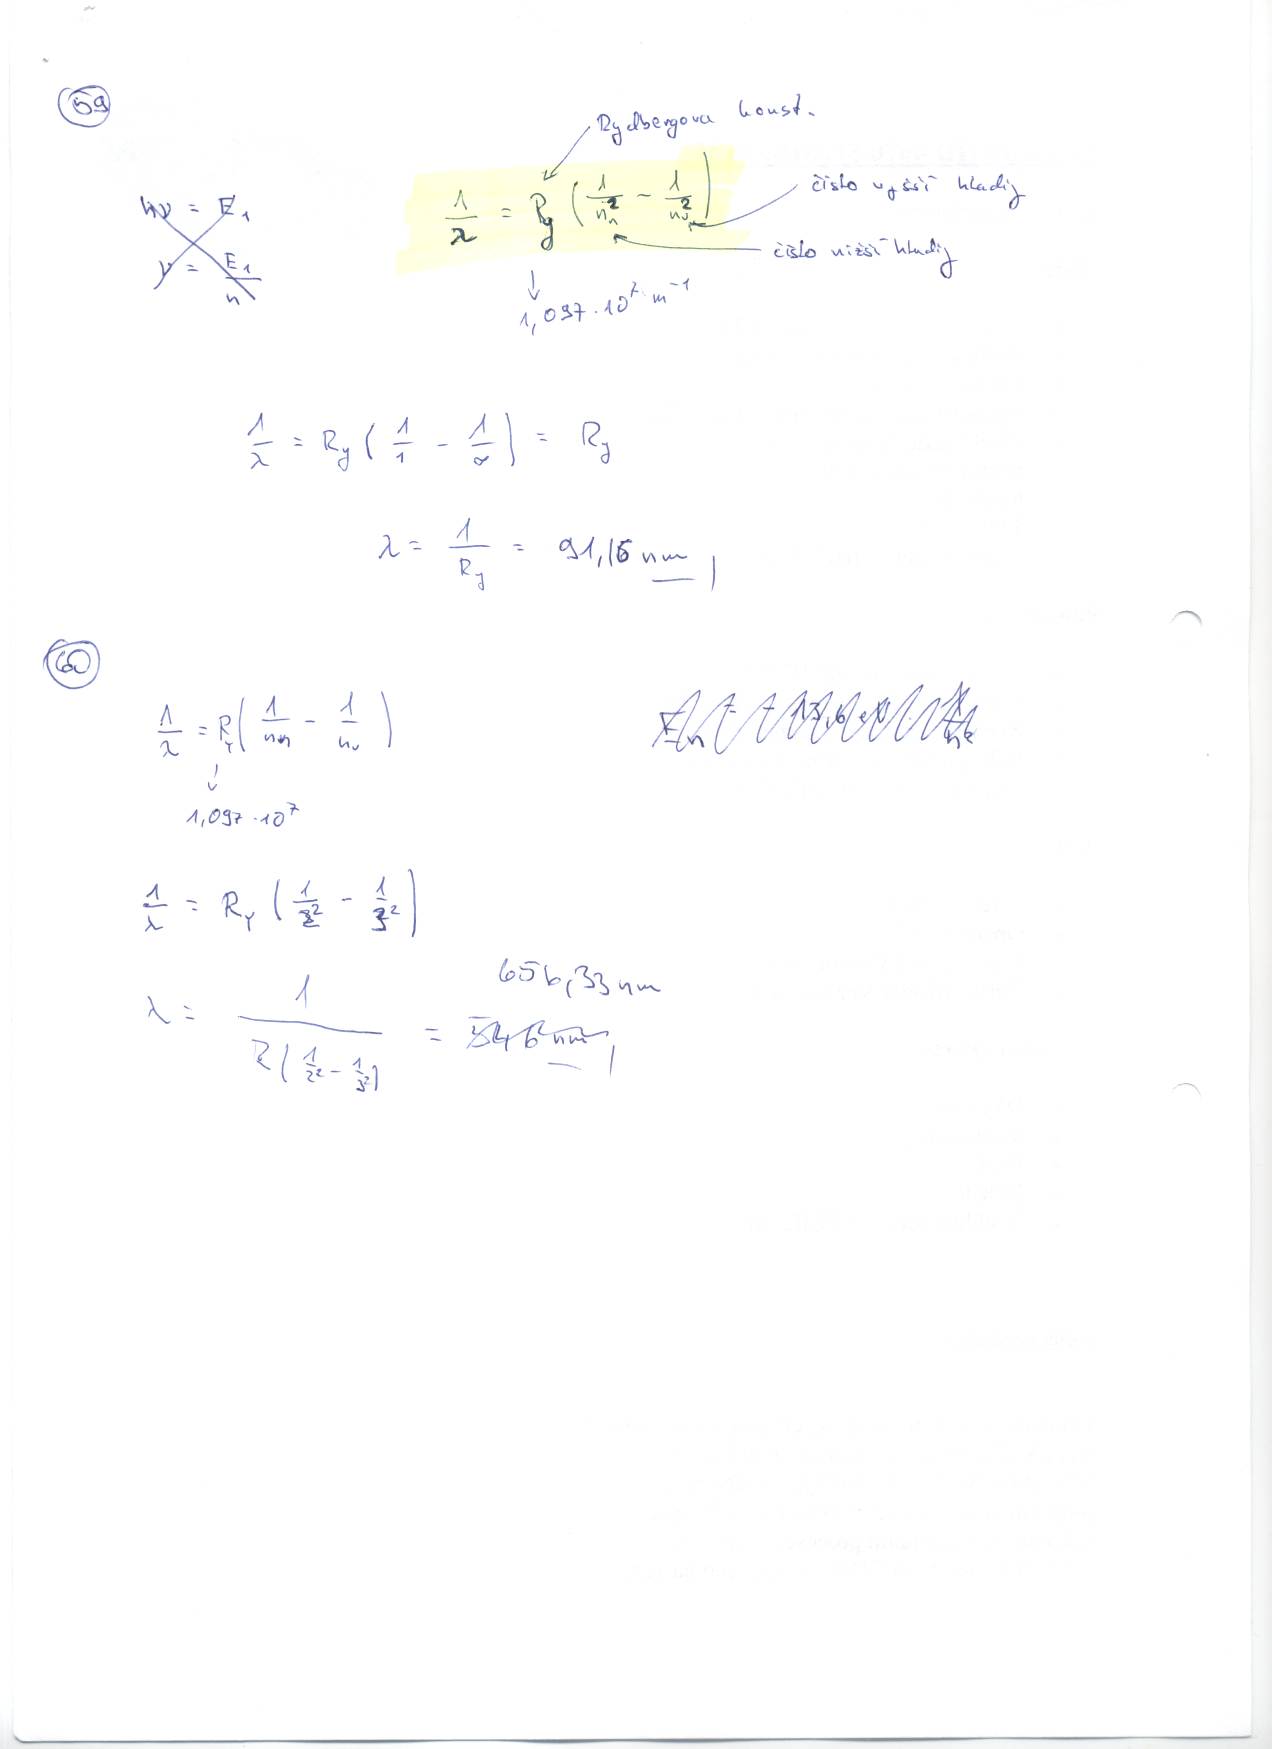 59
Rydbergova konst.
hν = E₁
ν = E₁/h
1/λ = Ry (1/nₙ² - 1/nᵥ²)
číslo vyšší hladiny
číslo nižší hladiny
1,097·10⁷ m⁻¹
1/λ = Ry (1/1 - 1/∞) = Ry
λ = 1/Ry = 91,16 nm
60
1/λ = Ry (1/nₙ - 1/nᵥ)
1,097·10⁷
1/λ = Ry (1/2² - 1/3²)
656,33 nm
λ = 1/R(1/2² - 1/3²) = 546 nm